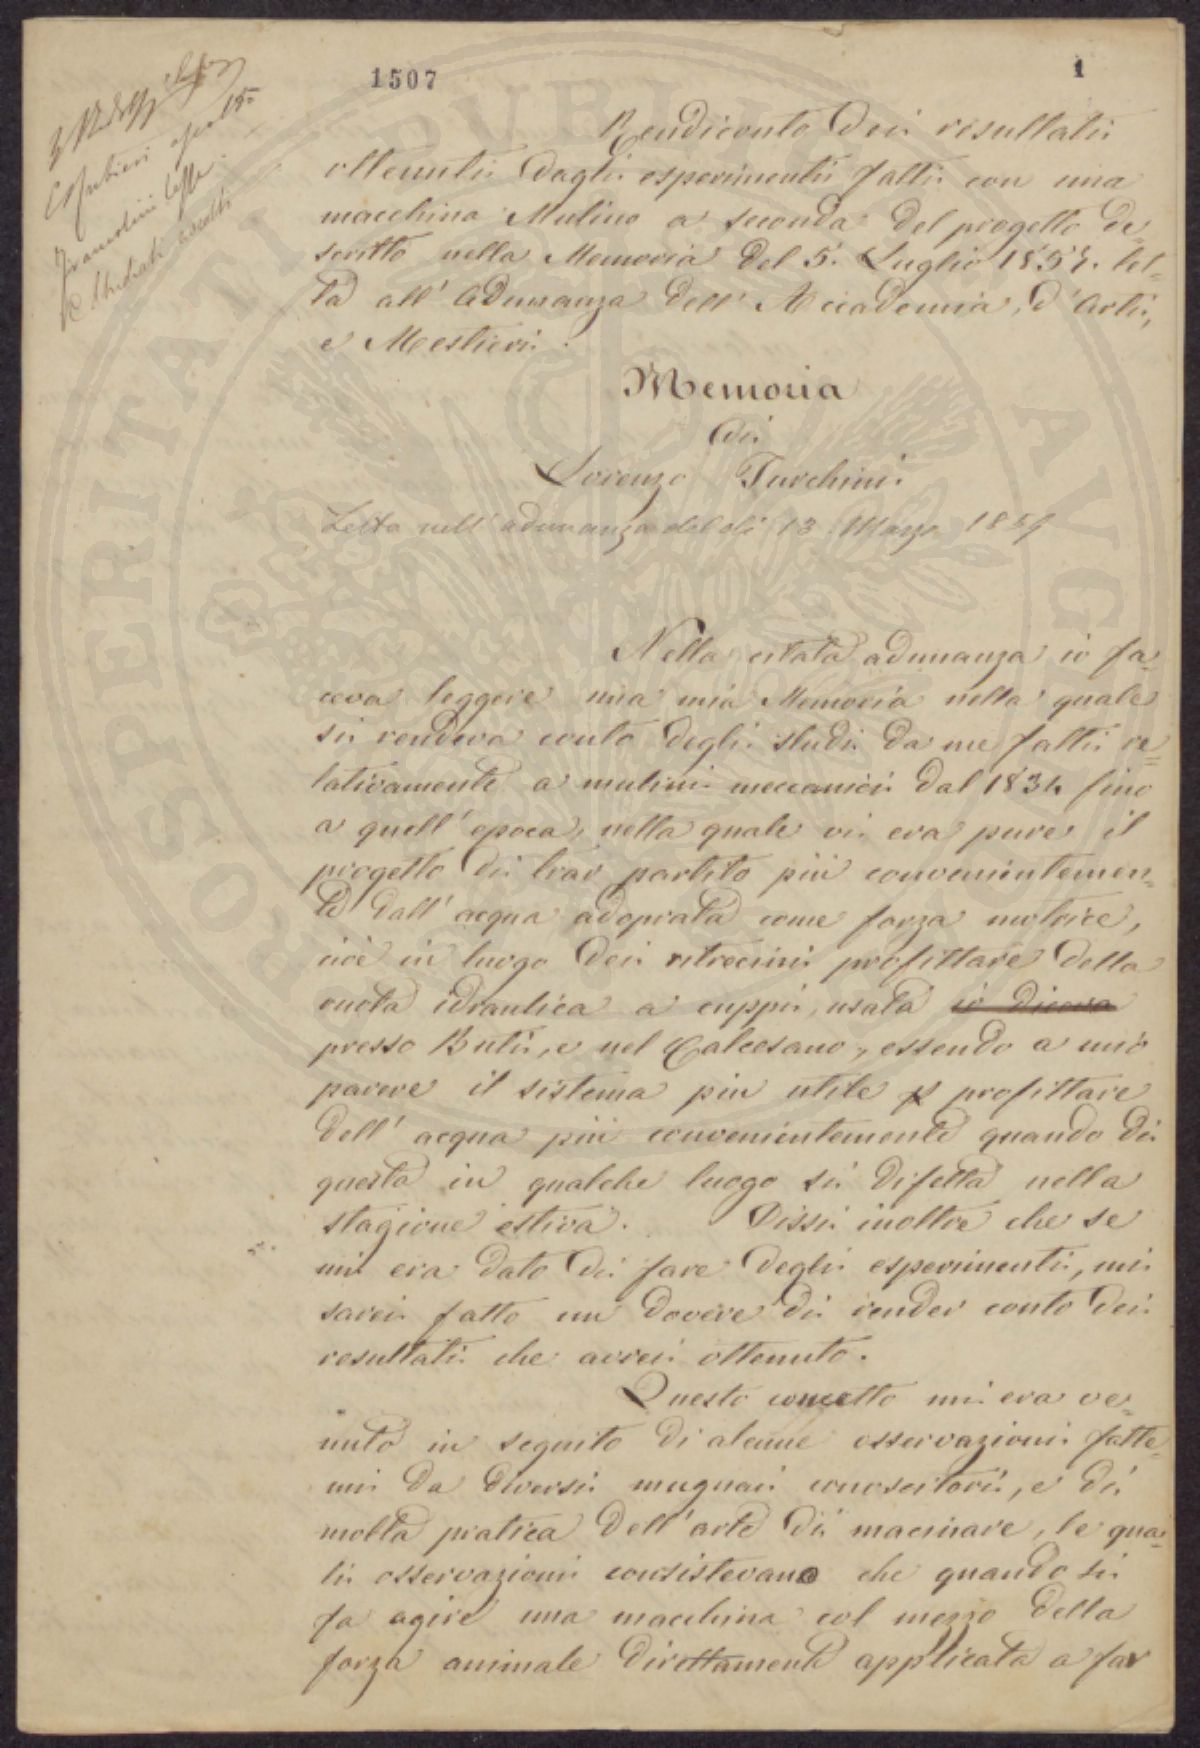 1507
1
Rendiconto dei risultati
ottenuti dagli esperimenti fatti con una
macchina Mulino a seconda del progetto de=
scritto nella Memoria del 5. Luglio 1857. let=
ta all' Adunanza dell' Accademia, d'Arti,
e Mestieri.
Memoria
di
Lorenzo Turchini
Letta nell'adunanza del dì 13 Marzo 1859
Nella citata adunanza io fa=
ceva leggere una mia Memoria nella quale
si rendeva conto degli studi da me fatti re=
lativamente a mulini meccanici dal 1834 fino
a quell'epoca, nella quale vi era pure il
progetto di trar partito più convenientemen=
te dall' acqua adoprata come forza motrice,
cioè in luogo dei ritrecini profittare della
ruota idraulica a cuppi, usata io diceva
presso Buti, e nel Calcesano, essendo a mio
parere il sistema piu utile p profittare
dell' acqua più convenientemente quando di
questa in qualche luogo si difetta nella
stagione estiva. Dissi inoltre che se
mi era dato di fare degli esperimenti, mi
sarei fatto un dovere di render conto dei
resultati che avrei ottenuto.
Questo concetto mi era ve=
nuto in seguito di alcune osservazioni fatte=
mi da diversi mugnai conoscitori, e di
molta pratica dell'arte di macinare, le qua=
li osservazioni consistevano che quando si
fa agire una macchina col mezzo della
forza animale direttamente applicata a far